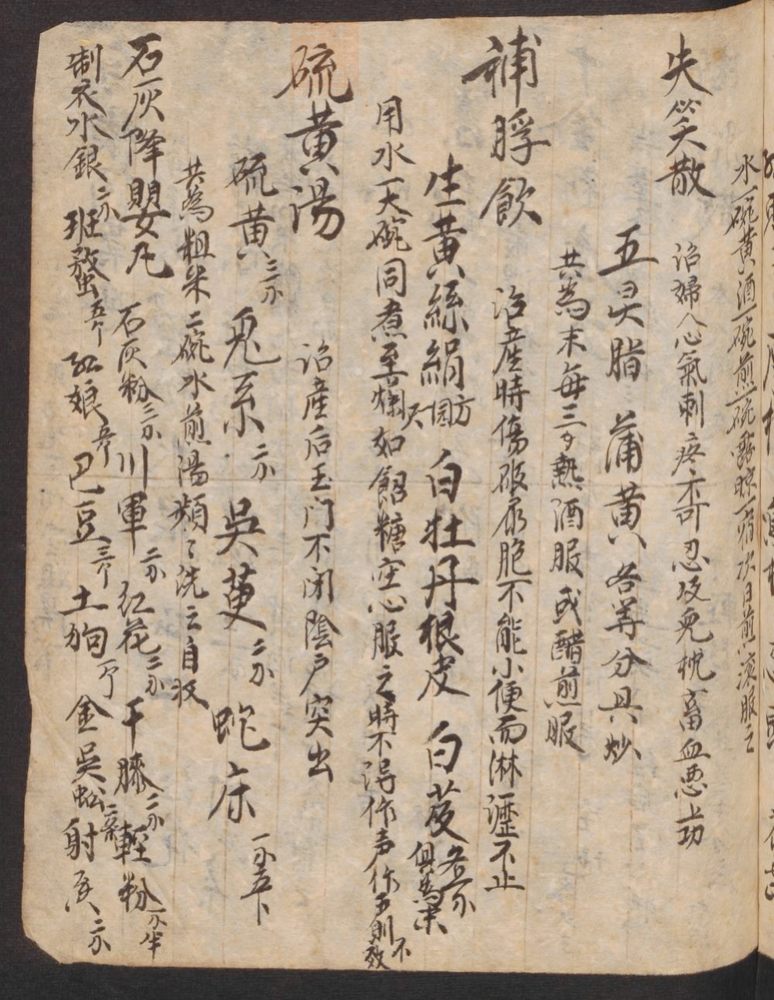 水一碗黃酒一碗煎一碗露晾一宿次日煎滚服之
失笑散 治婦人心氣刺疼不可忍及児枕畜血悪上功
五灵脂 蒲黄 各等分具炒
共為末每三錢熱酒服或醋煎服
補脬飲 治産時傷破尿胞不能小便而淋瀝不止
生黄絲絹一方尺 白牡丹根皮 白芨各一分俱為末
用水一大碗同煮至絹爛如餳糖空心服之時不得作声作声則不效
硫黄湯 治産后玉门不闭陰户突出
硫黄三分 兎糸二分 吳萸二分 蛇床一分五卜
共為粗末二碗水煎湯頻〻洗之自收
石灰降嬰丸 石灰粉三分 川軍二分 紅花二分 干膝二分 輕粉一分半
制衣水銀二分 班蝥五个 紅娘五个 巴豆三个 土狗一个 金吳蚣二条 射香二分